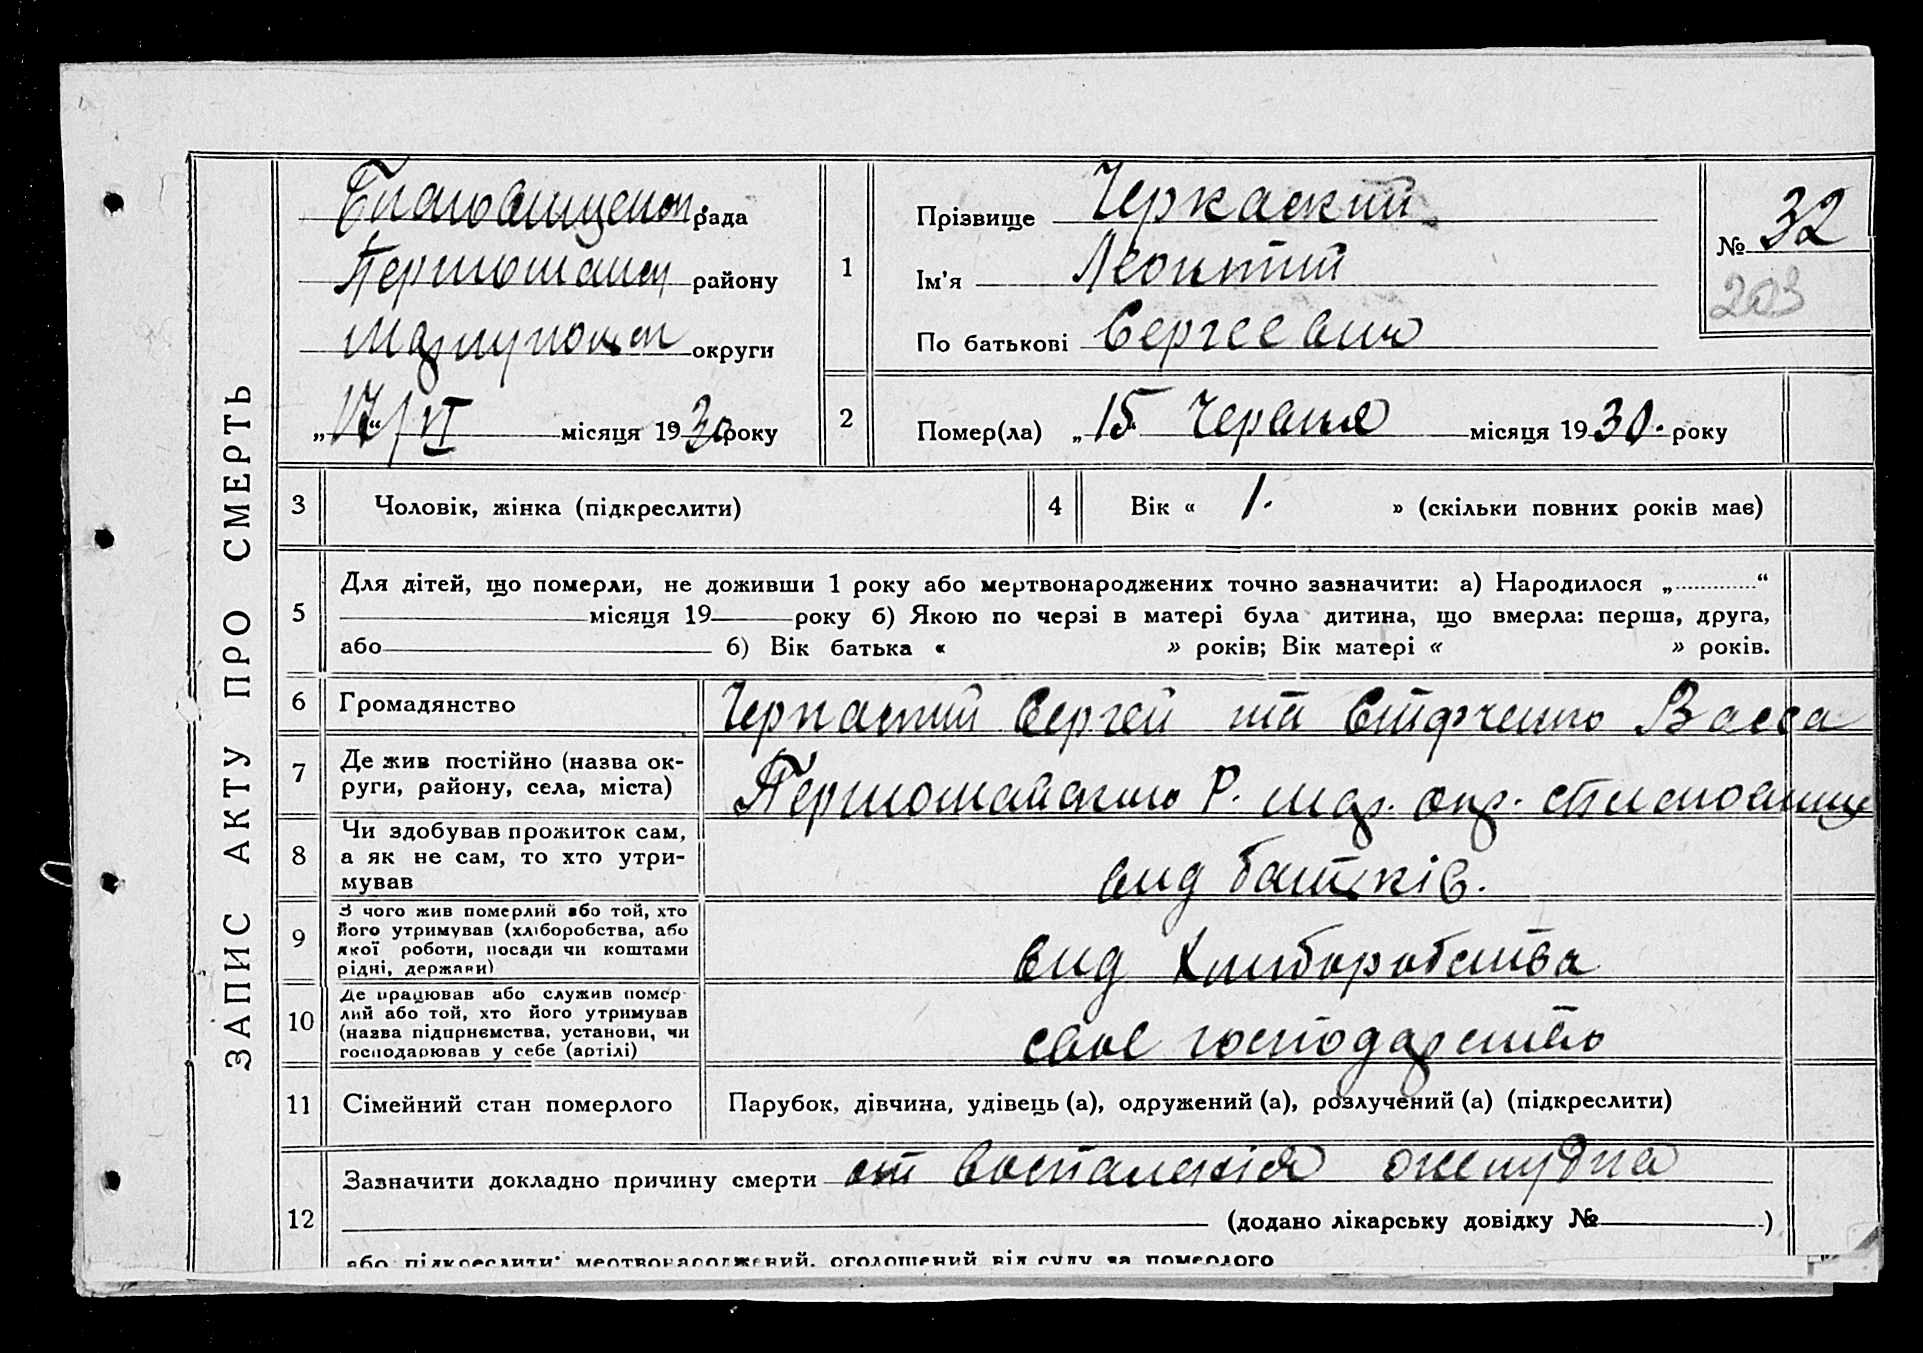 ЗАПИС АКТУ ПРО СМЕРТЬ
рада
району
округи
„17/VI“ місяця 1930 року
1
Прізвище Черкаский
Ім’я Леонтий
По батькові Сергеевич
№ 32
203
2
Помер(ла) „15 Червня місяця 1930. року
3 Чоловік, жінка (підкреслити)
4 Вік « 1. » (скільки повних років має)
5
Для дітей, що померли, не доживши 1 року або мертвонароджених точно зазначити: а) Народилося „ “
місяця 19 року б) Якою по черзі в матері була дитина, що вмерла: перша, друга,
або б) Вік батька « » років; Вік матері « » років.
6 Громадянство
Черкаский Сергей та Васса
7
Де жив постійно (назва ок-
руги, району, села, міста)
Першомайского Р. окр.
8
Чи здобував прожиток сам,
а як не сам, то хто утри-
мував
вид батьків.
9
З чого жив померлий або той, хто
його утримував (хліборобства, або
якої роботи, посади чи коштами
рідні, держави)
вид Хлиборобства
10
Де працював або служив помер-
лий або той, хто його утримував
(назва підприємства, установи, чи
господарював у себе (артілі)
свое господарство
11 Сімейний стан померлого
Парубок, дівчина, удівець (а), одружений (а), розлучений (а) (підкреслити)
12
Зазначити докладно причину смерти от воспаления желудка
(додано лікарську довідку № )
або підкреслити: мертвонароджений, оголошений від суду за померлого